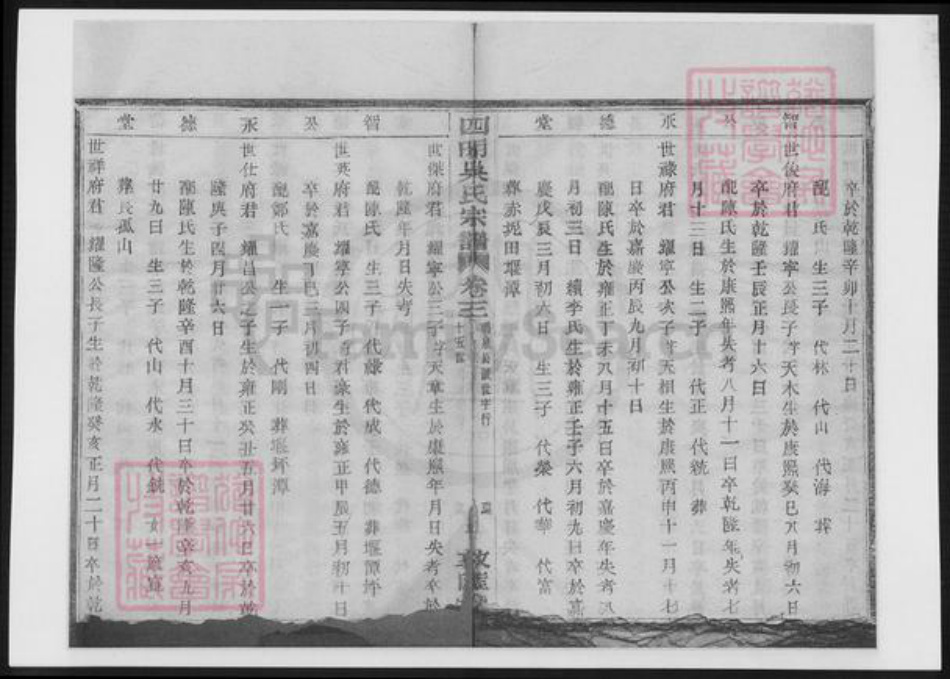 卒於乾隆辛卯十月二十日
配 氏 生三子 代林 代山 代海 葬
智 世俊府君 耀寧公長子字天木生於康熙癸巳 月初六日
卒於乾隆壬辰正月十六日
公 配陳氏生於康熙年失考八月十一日卒乾隆年失考七
月十三日 生二子 代正 代統 葬
承 世祿府君 耀寧公次子字天相生於康熙丙申十一月十七
日卒於嘉慶丙辰九月初十日
德 配陳氏生於雍正丁未八月十五日卒於嘉慶年失考八
月初三日 續李氏生於雍正壬子六月初九日卒於嘉
慶戊辰三月初六日 生三子 代榮 代華 代富
堂 葬赤坭田堰潭
四明吳氏宗譜 卷三
十五世
世傑府君 耀寧公三子字天章生於康熙年月日失考卒於
乾隆年月日失考
智 配陳氏 生三子 代祿 代成 代德 葬堰潭坪
世英府君 耀寧公四子字君 生於雍正甲辰五月初十日
公 卒於嘉慶丁巳三月初四日
配鄭氏 生一子 代剛 葬堰坪潭
承 世仕府君 耀昌公之子生於雍正癸丑五月廿六日卒於乾
隆庚子四月廿六日
德 配陳氏生於乾隆辛酉十月三十日卒於乾隆辛亥九月
廿九日 生三子 代山 代永 代銑 女
堂 世祥府君 耀隆公長子生於乾隆癸亥正月二十日卒於乾
葬長孤山